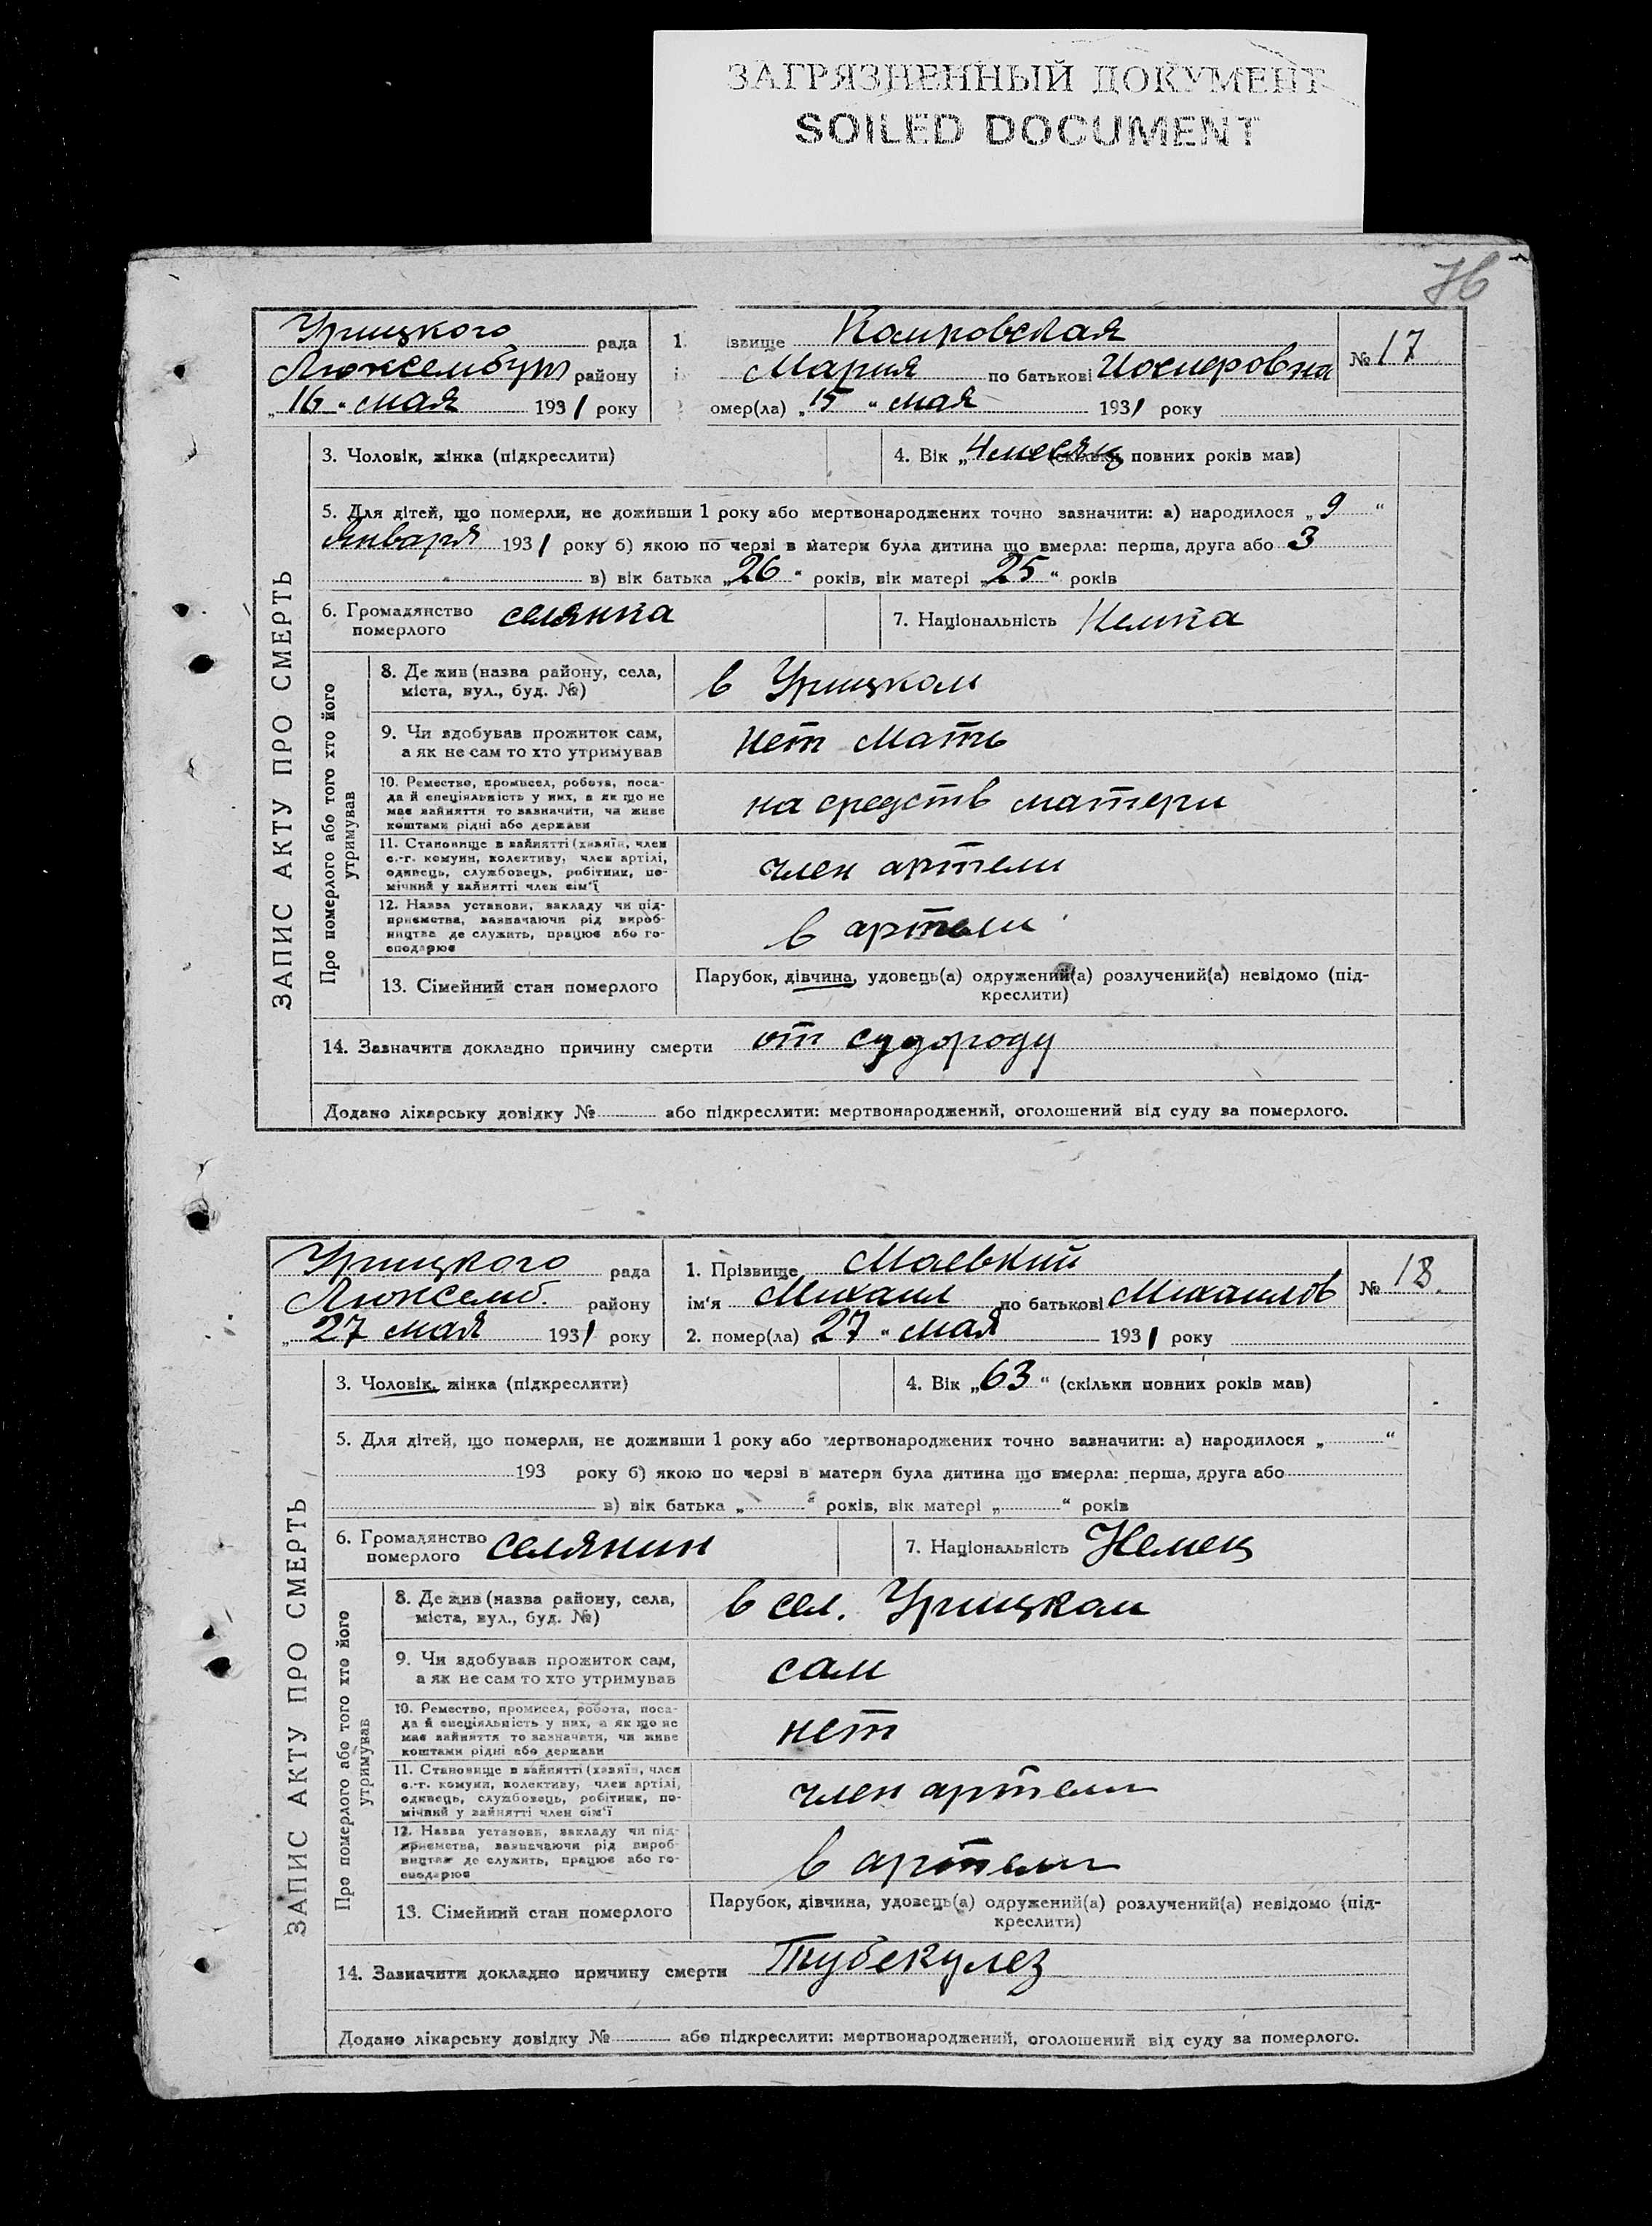 ЗАГРЯЗНЕННЫЙ ДОКУМЕНТ
SOILED DOCUMENT
76
Урицкого рада
Люксембург району
„16“ мая 1931 року
1. ізвище Каировская
Мария по батькові Иосиеровна
омер(ла) „15“ мая 1931 року
№ 17
ЗАПИС АКТУ ПРО СМЕРТЬ
3. Чоловік, жінка (підкреслити)
4. Вік „4 месяц (скільки повних років мав)
5. Для дітей, що померли, не доживши 1 року або мертвонароджених точно зазначити: а) народилося „9“
Января 1931 року б) якою по черзі в матери була дитина що вмерла: перша, друга або 3
в) вік батька „26“ років, вік матері „25“ років
6. Громадянство померлого селянка
7. Національність Немка
Про померлого або того хто його утримував
8. Де жив (назва району, села,
міста, вул., буд. №)
в Урицком
9. Чи здобував прожиток сам,
а як не сам то хто утримував
нет мать
10. Ремество, промисел, робота, поса-
да й спеціяльність у них, а як що не
має зайняття то зазначити, чи живе
коштами рідні або держави
на средств матери
11. Становище в зайнятті (хазяїн, член
с.-г. комуни, колективу, член артілі,
одинець, службовець, робітник, по-
мічний у зайнятті член сім'ї
член артели
12. Назва установи, закладу чи під-
приємства, зазначаючи рід вироб-
ництва де служить, працює або го-
сподарює
в артели
13. Сімейний стан померлого
Парубок, дівчина, удовець(а) одружений(а) розлучений(а) невідомо (під-
креслити)
14. Зазначити докладно причину смерти от судороду
Додано лікарську довідку № або підкреслити: мертвонароджений, оголошений від суду за померлого.
Урицкого рада
Люксемб. району
„27 мая 1931 року
1. Прізвище Маевкий
ім'я Михаил по батькові Михаилов
2. помер(ла) 27 “ мая 1931 року
№ 18.
ЗАПИС АКТУ ПРО СМЕРТЬ
3. Чоловік, жінка (підкреслити)
4. Вік „63“ (скільки повних років мав)
5. Для дітей, що померли, не доживши 1 року або мертвонароджених точно зазначити: а) народилося „ “
193 року б) якою по черзі в матери була дитина що вмерла: перша, друга або
в) вік батька „ “ років, вік матері „ “ років
6. Громадянство померлого селянин
7. Національність Немец
Про померлого або того хто його утримував
8. Де жив (назва району, села,
міста, вул., буд. №)
в сел. Урицком
9. Чи здобував прожиток сам,
а як не сам то хто утримував
сам
10. Ремество, промисел, робота, поса-
да й спеціяльність у них, а як що не
має зайняття то зазначити, чи живе
коштами рідні або держави
нет
11. Становище в зайнятті (хазяїн, член
с.-г. комуни, колективу, член артілі,
одинець, службовець, робітник, по-
мічний у зайнятті член сім'ї
член артели
12. Назва установи, закладу чи під-
приємства, зазначаючи рід вироб-
ництва де служить, працює або го-
сподарює
в артели
13. Сімейний стан померлого
Парубок, дівчина, удовець(а) одружений(а) розлучений(а) невідомо (під-
креслити)
14. Зазначити докладно причину смерти Тубекулез
Додано лікарську довідку № або підкреслити: мертвонароджений, оголошений від суду за померлого.